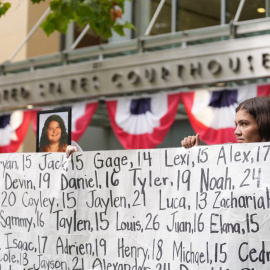 STATES COURTHOUSE
ryan, 15 Jack, 15 Gage, 14 Lexi, 15 Alex, 17
Devin, 19 Daniel, 16 Tyler, 19 Noah, 24
20 Coyley, 15 Jaylen, 21 Luca, 13 Zachariah
Sammy, 16 Taylen, 15 Louis, 26 Juan, 16 Elana, 15
Isaac, 17 Adrien, 19 Henry, 18 Michael, 15 Cedr
Cole, 13 Jayson, 21 Alexander, 24